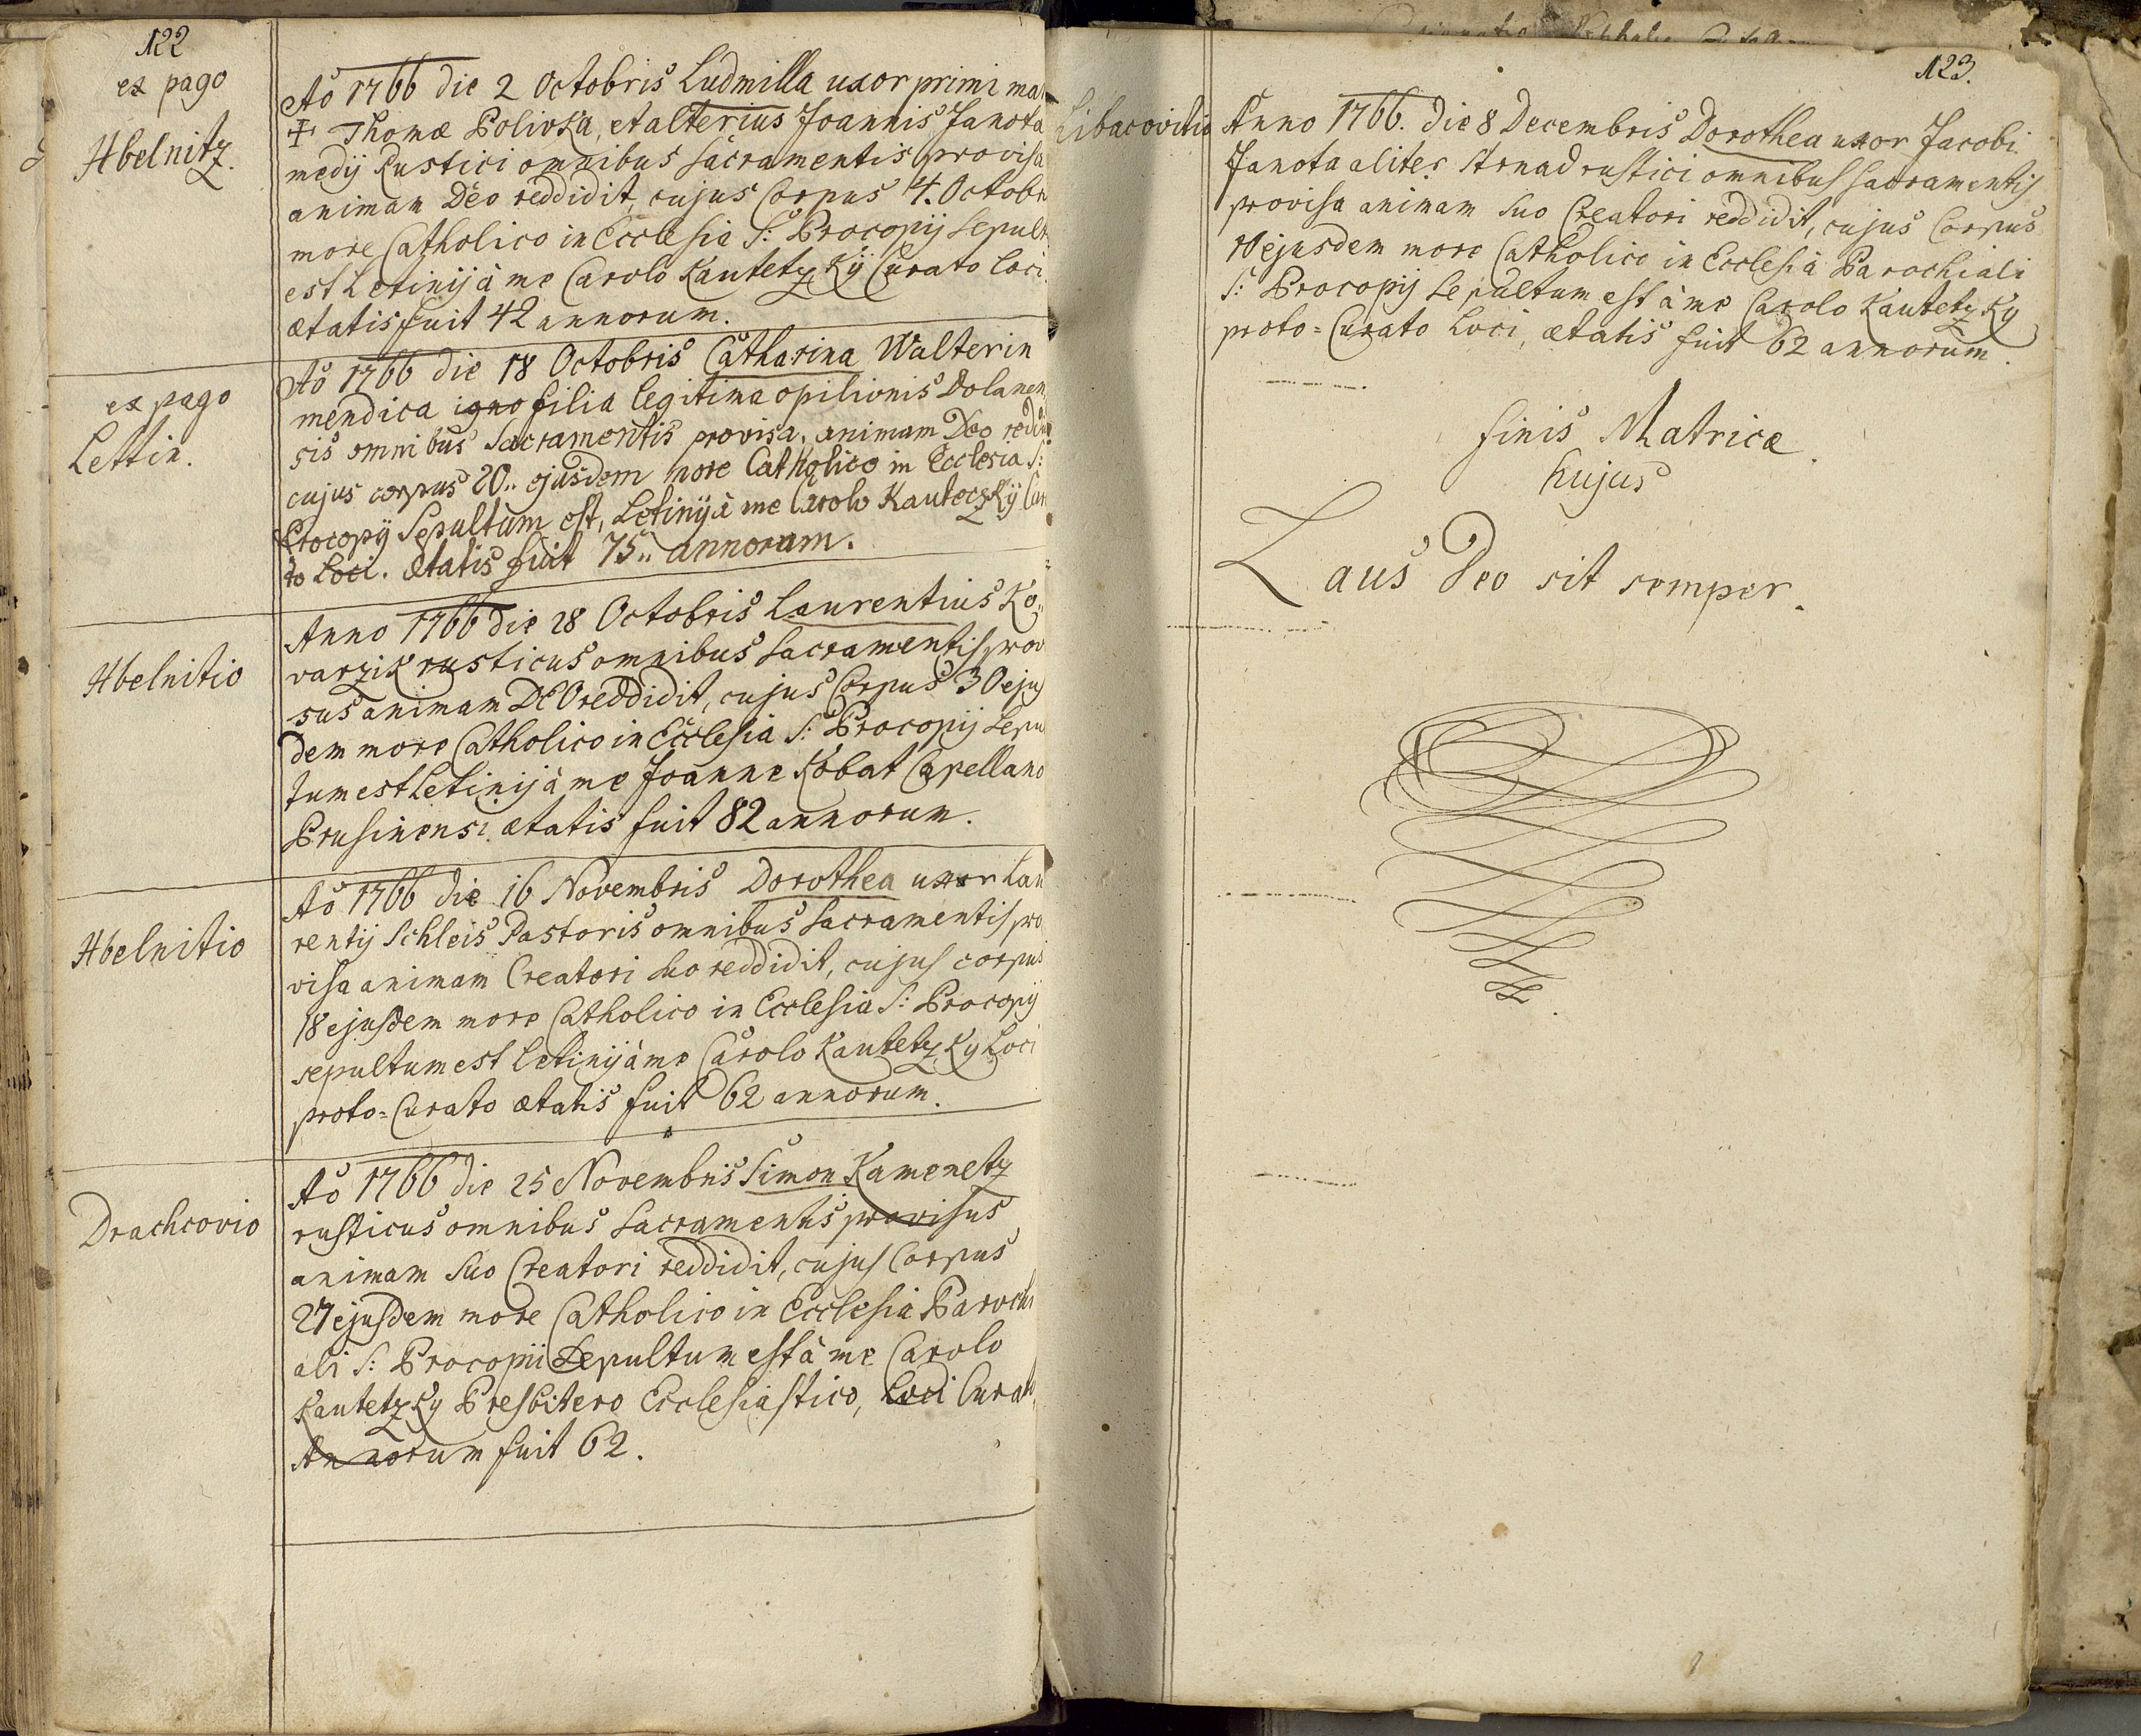 122
ex pago
Hbelnitz.
Ao 1766 die 2 Octobris Ludmilla uxor primi ma
Thomæ Polivka, et alterius Joannis Janota
medij Rustici omnibus sacramentis provisa
animam Deo reddidit, cujus Corpus 4. Octobr
more Catholico in Ecclesia S: Procopij Sepult
est Letinij à me Carolo Kautetzkÿ Curato loci.
ætatis fuit 42 annorum.
ex pago
Lettin.
Ao 1766 die 18 Octobris Catharina Walterin
mendica igno filia legitima opilionis Dolanen
sis omnibus Sacramentis provisa, animam Deo
cujus corpus 20.. ejusdem more Catholico in Ecclesia S:
Procopÿ Sepultum est, Letinÿ à me Carolo KauteczKÿ Cu
to Loci. Ætatis fuit 75.. annorum.
Hbelnitio
Anno 1766 die 28 Octobris Laurentius Ko..
varzik rusticus omnibus Sacramentis prov
sus animam DEO reddidit, cujus Corpus 30 ejus
dem more Catholico in Ecclesia S: Procopij Sepu
tum est Letinij à me Joanne Kobat Capellano
Prusinensi ætatis fuit 82 annorum.
Hbelnitio
Ao 1766 die 16 Novembris Dorothea uxor Lau
rentij Schleis Pastoris omnibus Sacramentis pro
visa animam Creatori suo reddidit, cujus corpus
18 ejusdem more Catholico in Ecclesia S: Procopij
sepultum est Letinij à me Carolo Kautetzky Loci
proto=Curato ætatis fuit 62 annorum.
Drachcovio
Ao 1766 die 25 Novembris Simon Kamenetz
rusticus omnibus Sacramentis provisus
animam suo Creatori reddidit, cujus Corpus
27 ejusdem more Catholico in Ecclesia Parochi
ali S: Procopii Sepultum est à me Carolo
Kautetzky Presbitero Ecclesiastico, Loci Curato
Annorum fuit 62.
123.
Libacovitio
Anno 1766. die 8 Decembris Dorothea uxor Jacobi
Janota aliter Strnad rustici omnibus sacramentis
provisa animam suo Creatori reddidit, cujus Corpus
10 ejusdem more Catholico in Ecclesia Parochiali
S: Procopij Sepultum est à me Carolo Kautetzky
proto=Curato Loci, ætatis fuit 62 annorum.
finis Matricæ
hujus
Laus Deo sit semper.